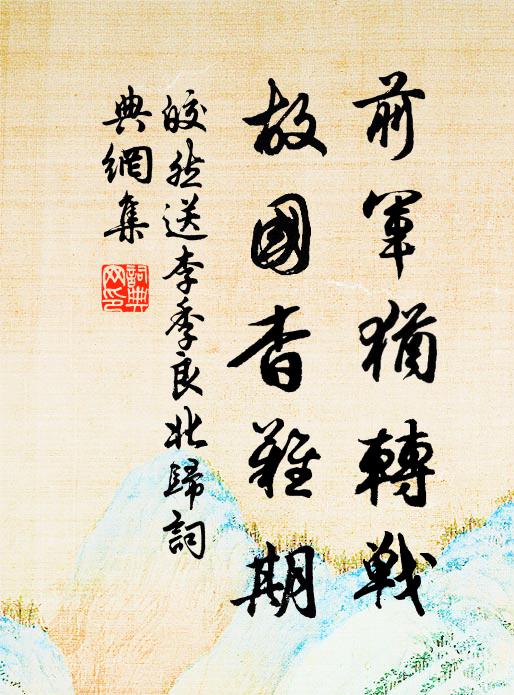 前軍猶轉戰
故國杳難期
皎然送李季良北歸詞
典網集
詞典網印